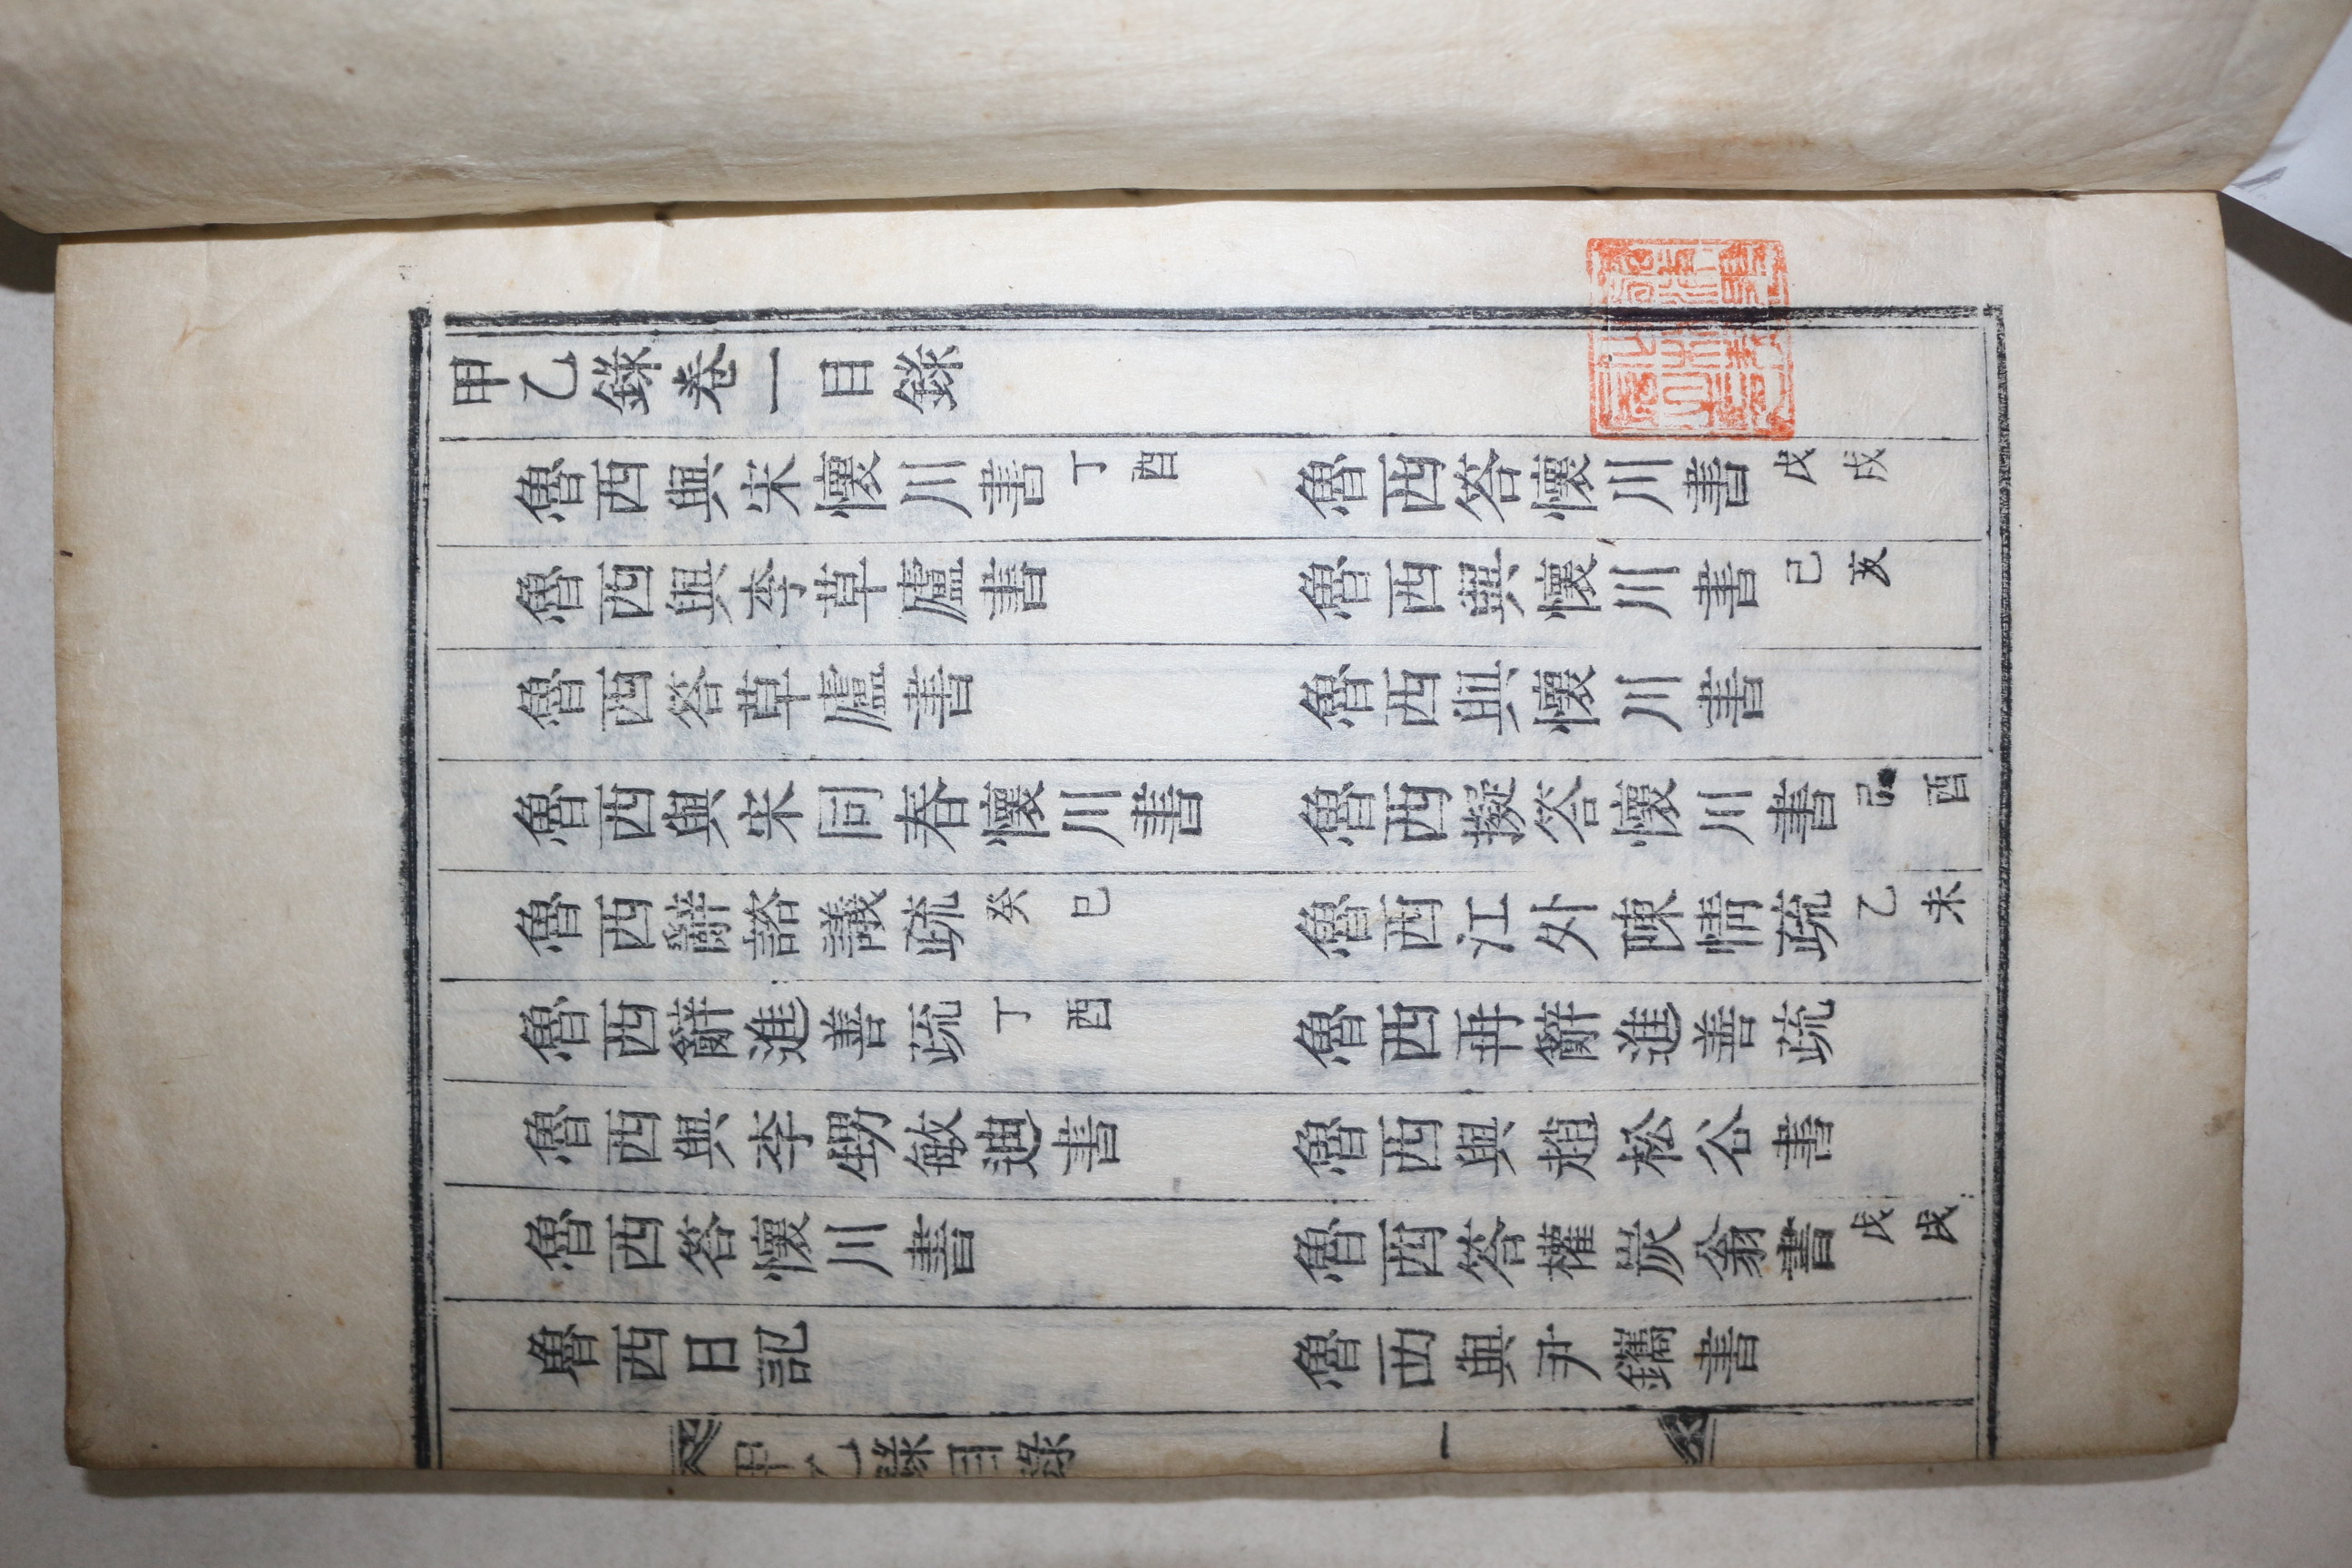 甲乙錄卷一目錄
魯西與宋懷川書丁酉 魯西答懷川書戊戌
魯西與李草廬書 魯西與懷川書己亥
魯西答草廬書 魯西與懷川書
魯西與宋同春懷川書 魯西擬答懷川書己酉
魯西辭諮議疏癸巳 魯西江外陳情疏乙未
魯西辭進善疏丁酉 魯西再辭進善疏
魯西與李甥敏迪書 魯西與趙松谷書
魯西答懷川書 魯西答權炭翁書戊戌
魯西日記 魯西與尹鑴書
甲乙錄目錄 一